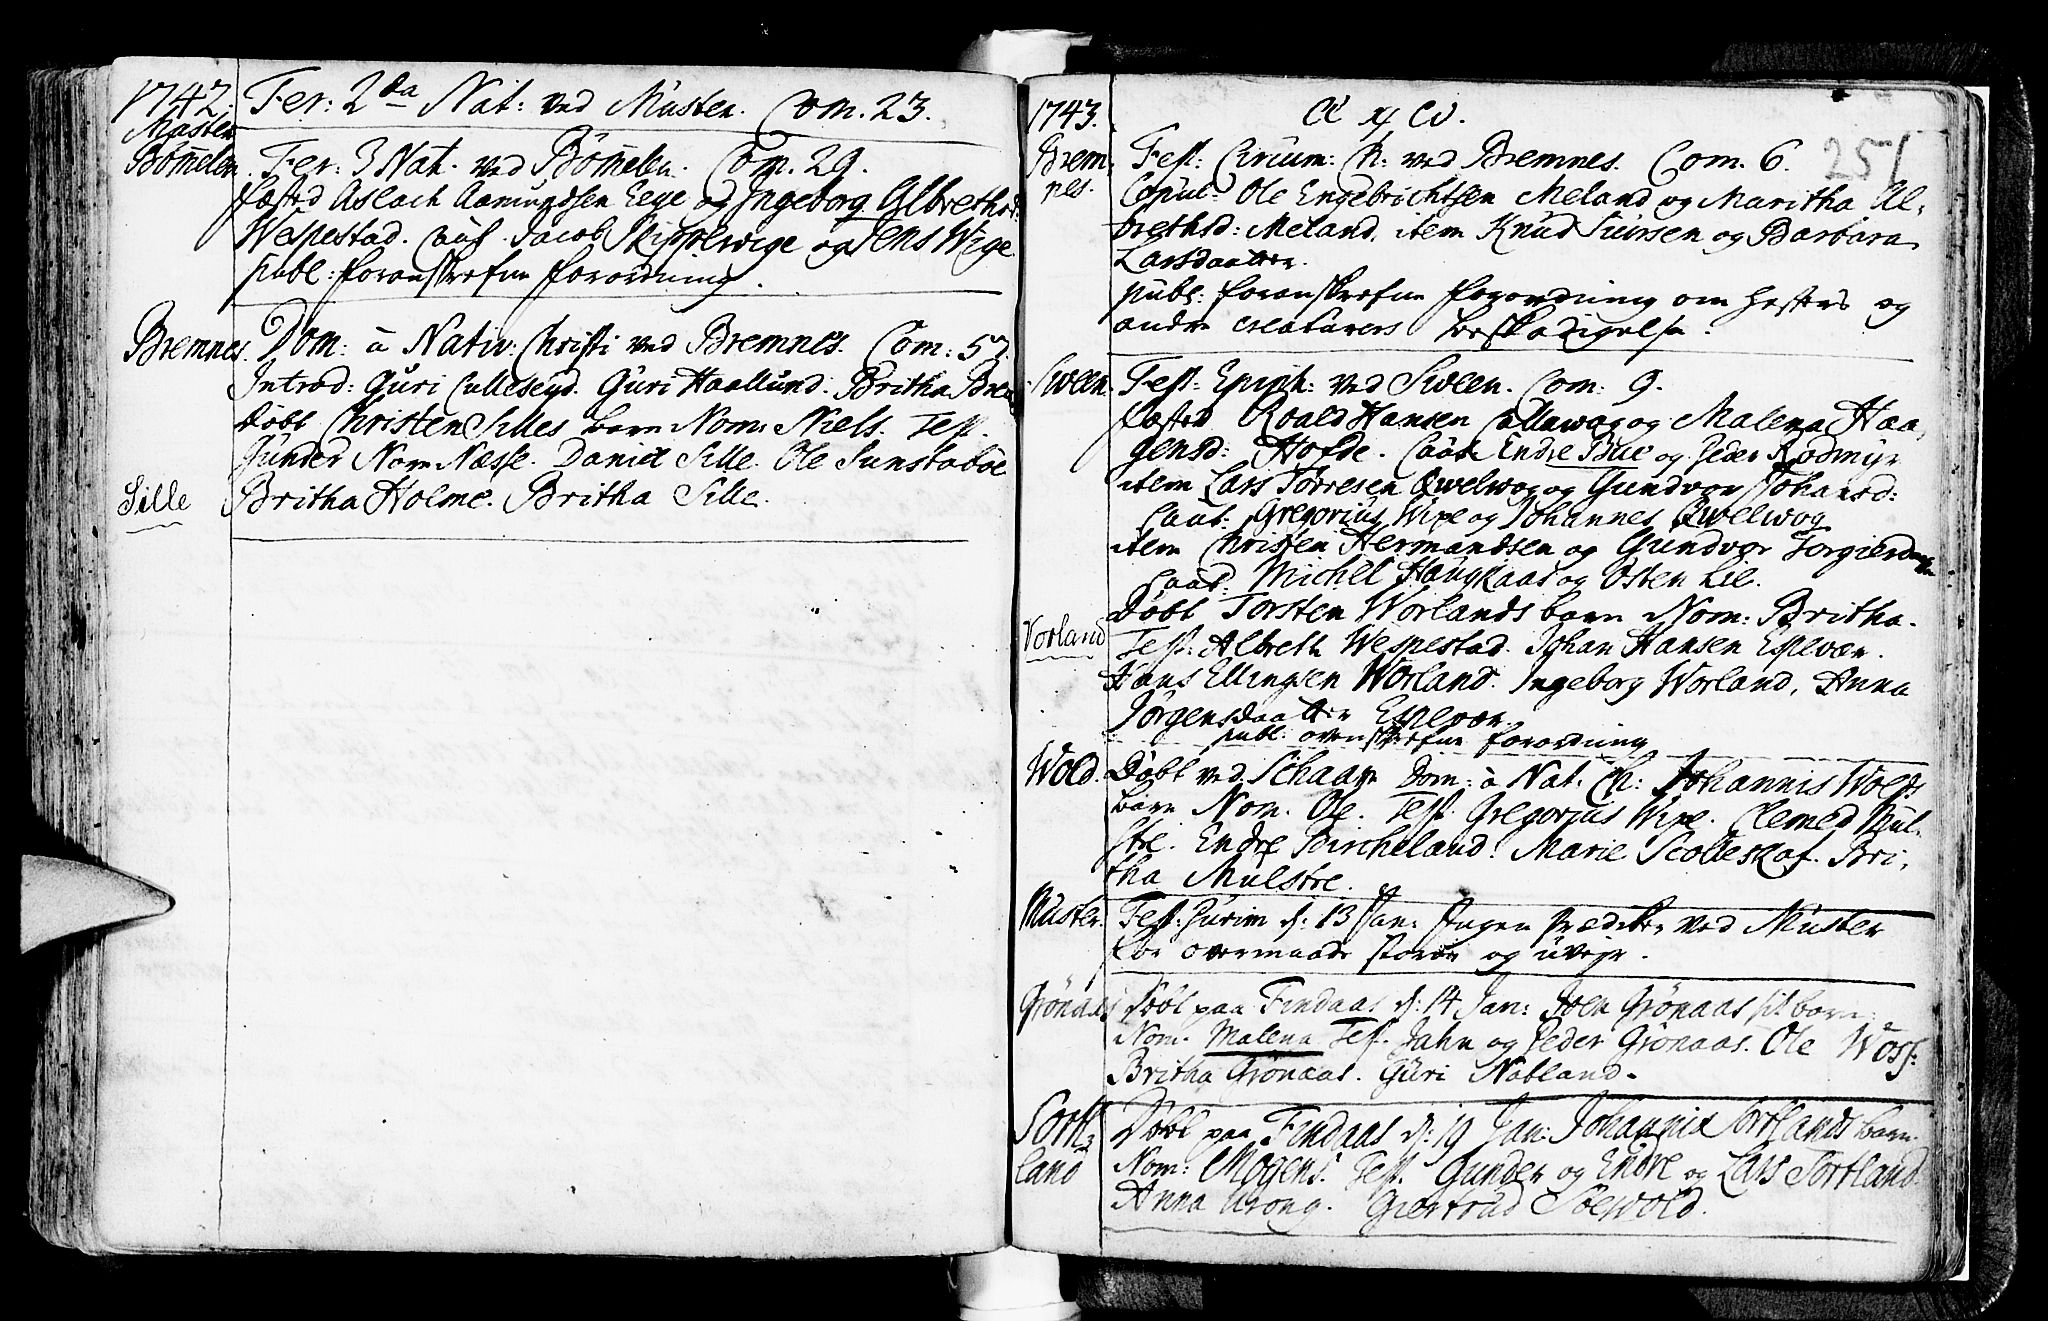 1742.
Fer: 2da Nat: ved Muster. Com. 23.
Muster
Bömelen
Fer: 3 Nat. ved Bömelen. Com. 29.
fæsted Aslach Aamundsen Eege og Ingeborg Albrethsd:
Wespestad. Caut: Jacob Skippewige og Jens Wige.
publ: foranskrefne forordning.
Bremnes.
Dom: à Nativ: Christi ved Bremnes. Com: 57.
Introd: Guri Calleseyd. Guri Haallund. Britha Brem
Döbt Christen Silles barn Nom: Niels. Test.
Gunder Norn Næsse. Daniel Sille. Ole Sunstaböe
Sille
Britha Holme. Britha Sille.
1743.
251
Brem-
nes.
Fest: Circum: Ch: ved Bremnes. Com. 6.
Copul: Ole Engebrichtsen Meland og Maritha Al-
brethsd: Meland. item Knud Siursen og Barbara
Larsdaatter.
publ: foranskrefne forordning om hesters og
andre creaturers beskadigelse.
Sween.
Fest: Epiph: ved Sween. Com: 9.
fæsted Roald Hansen Callawog og Malena Haa-
gensd: Hofde. Caut: Endre Bue og Peder Rödmyr
item Lars Torresen Qwelwog og Gundvor Johansd:
Caut: Gregorius Wipe og Johannes Qwelwog
item Christen Hermandsen og Gundvor Torgiersd
Caut: Michel Haugkaas og Osten Lie.
Döbt Torsten Worlands barn Nom: Britha.
Vorland
Test: Albreth Wespestad. Johan Hansen Espevær.
Hans Ellingsen Worland. Ingeborg Worland, Anna
Jörgensdaatter Espevær.
publ: ovenskrefne forordning
Wold.
Döbt ved Schaare Dom: à Nat: Ch: Johannis Wolds
barn Nom. Ole. Test. Gregorius Wipe. Clemed Mul-
stre. Endre Bircheland. Marie Scolleskaf. Bri-
tha Mulstre.
Muster.
Test: d: 13 Jan: Ingen Prædiken ved Muster
for overmaade storm og uvejr.
Grönaas
Döbt paa Findaas d: 14 Jan: Joen Grönaas sit barn
Nom. Malena Test. Jahn og Peder Grönaas. Ole Woss:
Britha Grönaas. Guri Nabland.
Sort-
land
Döbt paa Findaas d: 19 Jan: Johannis Sortlands barn
Nom: Mogens. Test. Gunder og Endre og Lars Sortland.
Anna Urong. Giertrud Söewold.